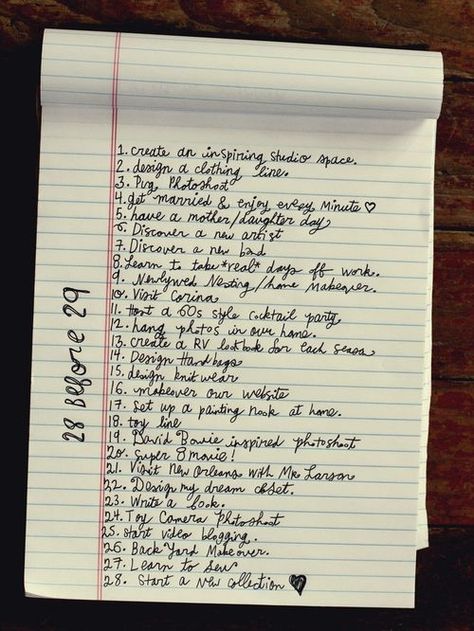 28 Before 29
1. create an inspiring studio space.
2. design a clothing line.
3. Pug Photoshoot
4. get married & enjoy every Minute ♡
5. have a mother/daughter day
6. Discover a new artist
7. Discover a new band
8. Learn to take *real* days off work.
9. Newlywed Nesting/home Makeover.
10. Visit Corina
11. Host a 60s style cocktail party
12. hang photos in our home.
13. create a RV lookbook for each season
14. Design Handbags
15. design knitwear
16. makeover our website
17. set up a painting nook at home.
18. toy line
19. David Bowie inspired photoshoot
20. super 8 movie!
21. Visit New Orleans with Mr. Larson
22. Design my dream closet.
23. Write a book.
24. Toy Camera Photoshoot
25. start video blogging.
26. Back Yard Makeover.
27. Learn to sew
28. Start a New Collection ♥